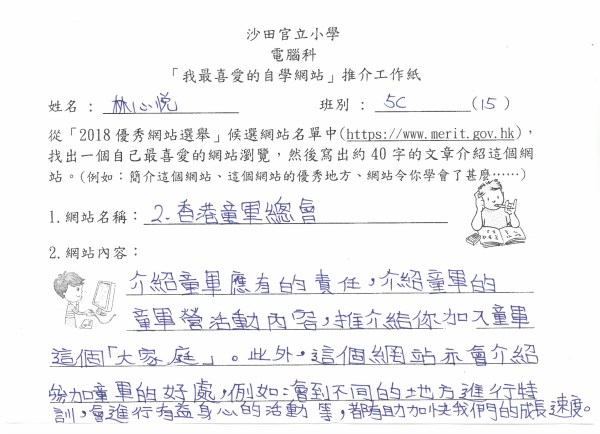 沙田官立小學
電腦科
「我最喜愛的自學網站」推介工作紙
姓名：林心悅 班別：5C (15)
從「2018優秀網站選舉」候選網站名單中(https://www.merit.gov.hk)，
找出一個自己最喜愛的網站瀏覽，然後寫出約 40 字的文章介紹這個網
站。(例如：簡介這個網站、這個網站的優秀地方、網站令你學會了甚麼⋯⋯)
1.網站名稱：2.香港童軍總會
2.網站內容：
介紹童軍應有的責任，介紹童軍的
童軍營活動內容，推介給你加入童軍
這個「大家庭」。此外，這個網站亦會介紹
參加童軍的好處，例如：會到不同的地方進行特
訓，會進行有益身心的活動等，都有助加快我們的成長速度。